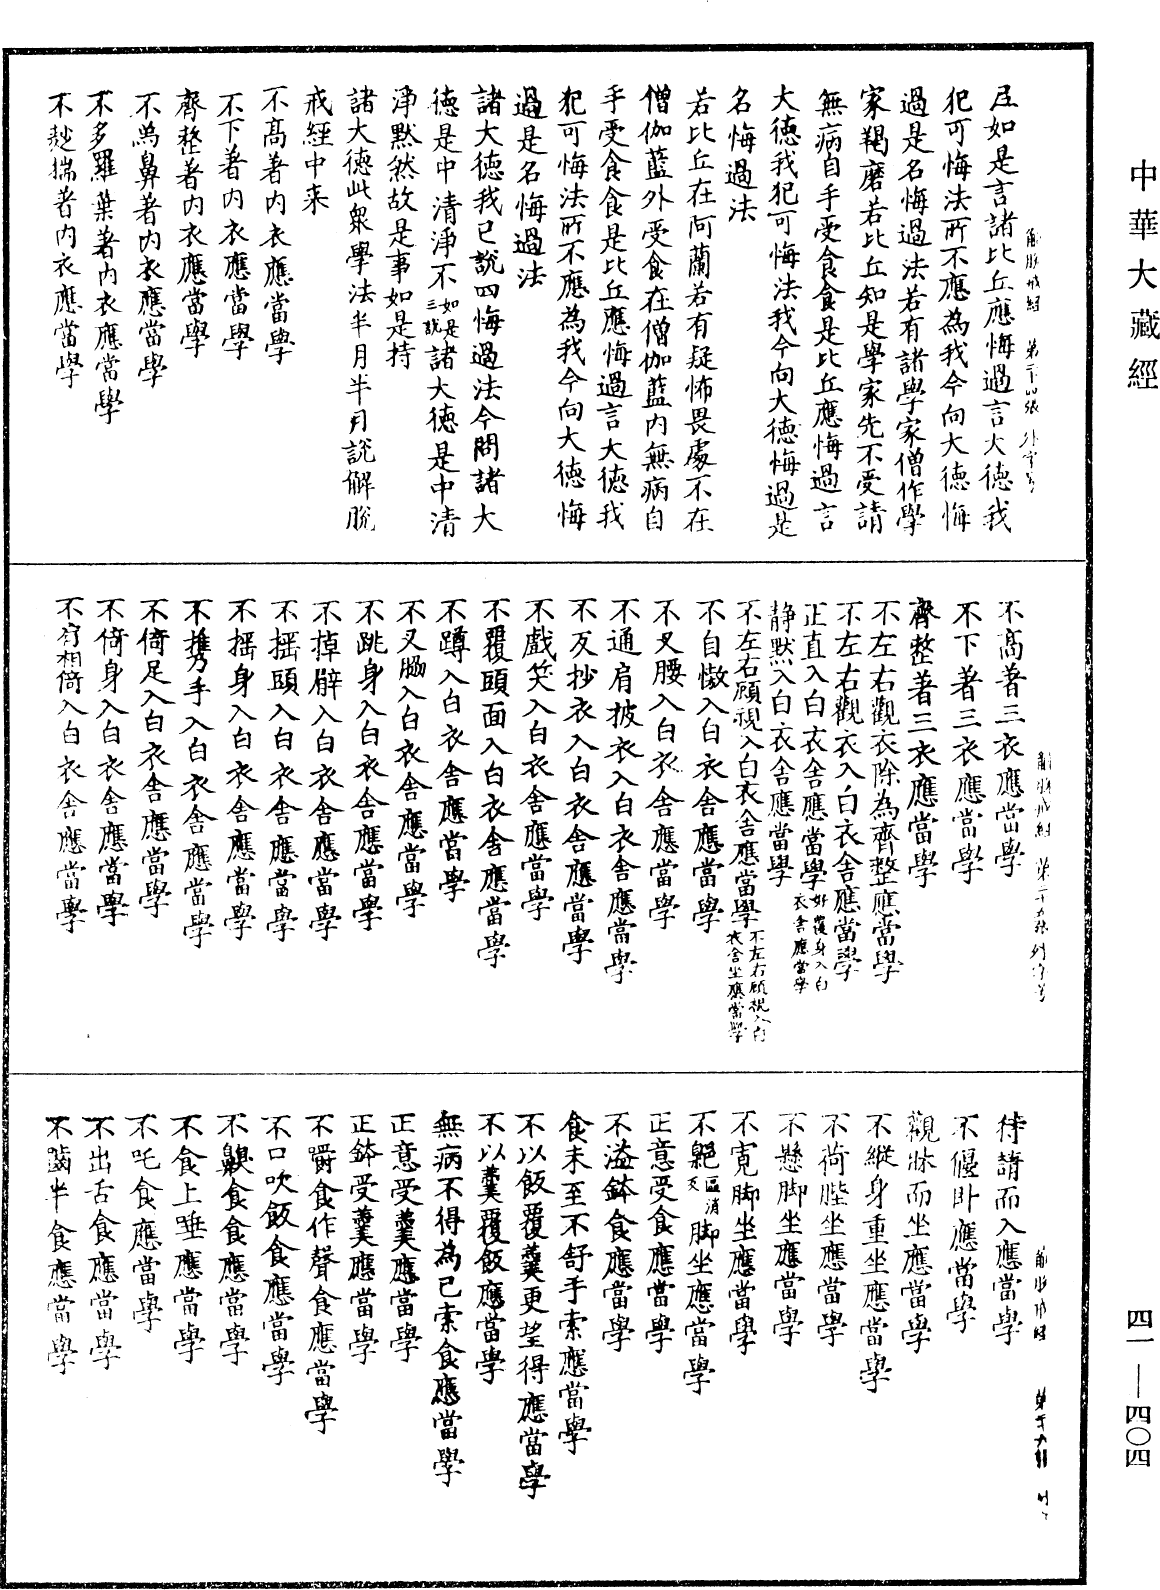 中華大藏經
四一—四〇四
屈如是言諸比丘應悔過言大德我
犯可悔法所不應為我今向大德悔
過是名悔過法若有諸學家僧作學
家羯磨若比丘知是學家先不受請
無病自手受食食是比丘應悔過言
大德我犯可悔法我今向大德悔過是
名悔過法
若比丘在阿蘭若有疑怖畏處不在
僧伽藍外受食在僧伽藍內無病自
手受食食是比丘應悔過言大德我
犯可悔法所不應為我今向大德悔
過是名悔過法
諸大德我已說四悔過法今問諸大
德是中清淨不如是三說諸大德是中清
淨默然故是事如是持
諸大德此眾學法半月半月說解脫
戒經中来
不高著內衣應當學
不下著內衣應當學
齊整著內衣應當學
不為鼻著內衣應當學
不多羅葉著內衣應當學
不麨揣著內衣應當學
不高著三衣應當學
不下著三衣應當學
齊整著三衣應當學
不左右觀衣除為齊整應當學
不左右觀衣入白衣舍應當學
正直入白衣舍應當學好覆身入白衣舍應當學
静默入白衣舍應當學
不左右顧視入白衣舍應當學不左右顧視入白衣舍坐應當學
不自慠入白衣舍應當學
不叉腰入白衣舍應當學
不通肩披衣入白衣舍應當學
不反抄衣入白衣舍應當學
不戲笑入白衣舍應當學
不覆頭面入白衣舍應當學
不蹲入白衣舍應當學
不叉脇入白衣舍應當學
不跳身入白衣舍應當學
不掉臂入白衣舍應當學
不摇頭入白衣舍應當學
不摇身入白衣舍應當學
不携手入白衣舍應當學
不倚足入白衣舍應當學
不倚身入白衣舍應當學
不肩相倚入白衣舍應當學
待請而入應當學
不偃卧應當學
觀牀而坐應當學
不縱身重坐應當學
不荷䏶坐應當學
不懸脚坐應當學
不寬脚坐應當學
不脚坐應當學
正意受食應當學
不溢鉢食應當學
食未至不舒手索應當學
不以飯覆羹更望得應當學
不以羹覆飯應當學
無病不得為己索食應當學
正意受羹應當學
正鉢受羹應當學
不嚼食作聲食應當學
不口吹飯食應當學
不齅食食應當學
不食上唾應當學
不吒食應當學
不出舌食應當學
不齧半食應當學